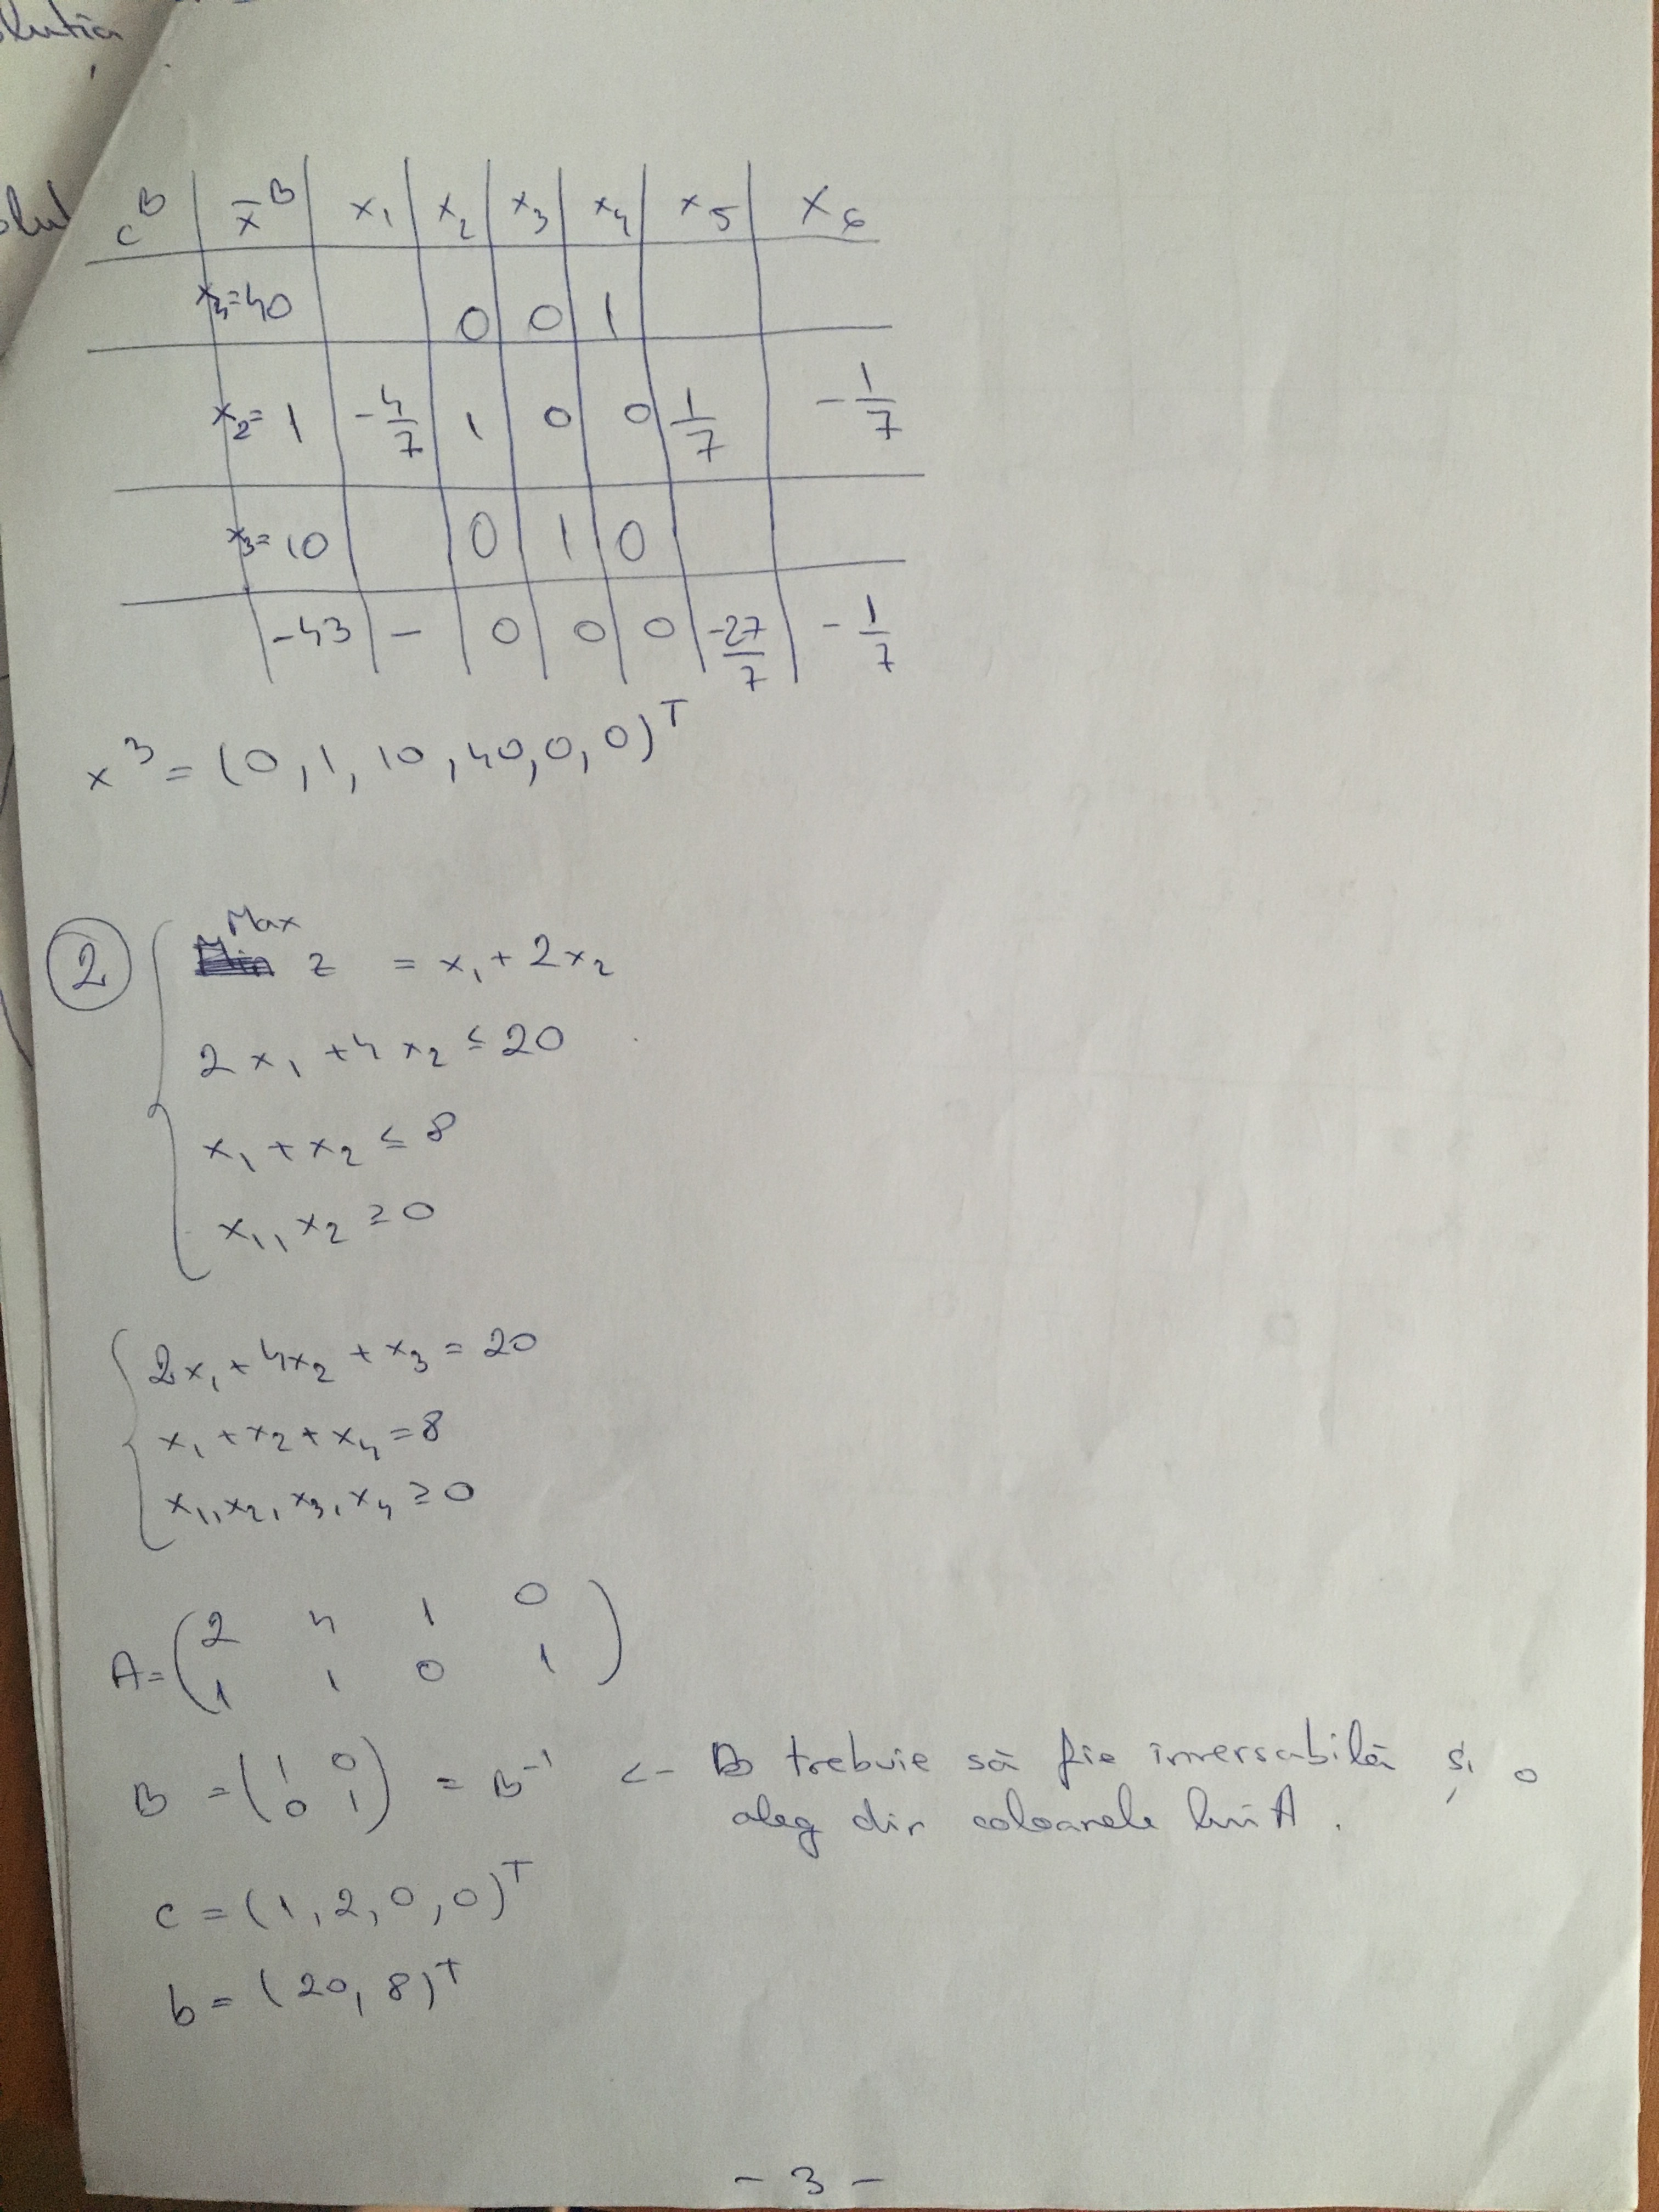 luția
c^B | x̄^B | x₁ | x₂ | x₃ | x₄ | x₅ | x₆
x₄=40 | | 0 | 0 | 1 | |
x₂=1 | -4/7 | 1 | 0 | 0 | 1/7 | -1/7
x₃=10 | | 0 | 1 | 0 | |
-43 | - | 0 | 0 | 0 | -27/7 | -1/7
x³ = (0, 1, 10, 40, 0, 0)^T
② Max z = x₁ + 2x₂
2x₁ + 4x₂ ≤ 20
x₁ + x₂ ≤ 8
x₁, x₂ ≥ 0
2x₁ + 4x₂ + x₃ = 20
x₁ + x₂ + x₄ = 8
x₁, x₂, x₃, x₄ ≥ 0
A = (2 4 1 0
1 1 0 1)
B = (1 0
0 1) = B⁻¹ <- B trebuie să fie inversabilă și o
aleg din coloanele lui A.
c = (1, 2, 0, 0)^T
b = (20, 8)^T
- 3 -